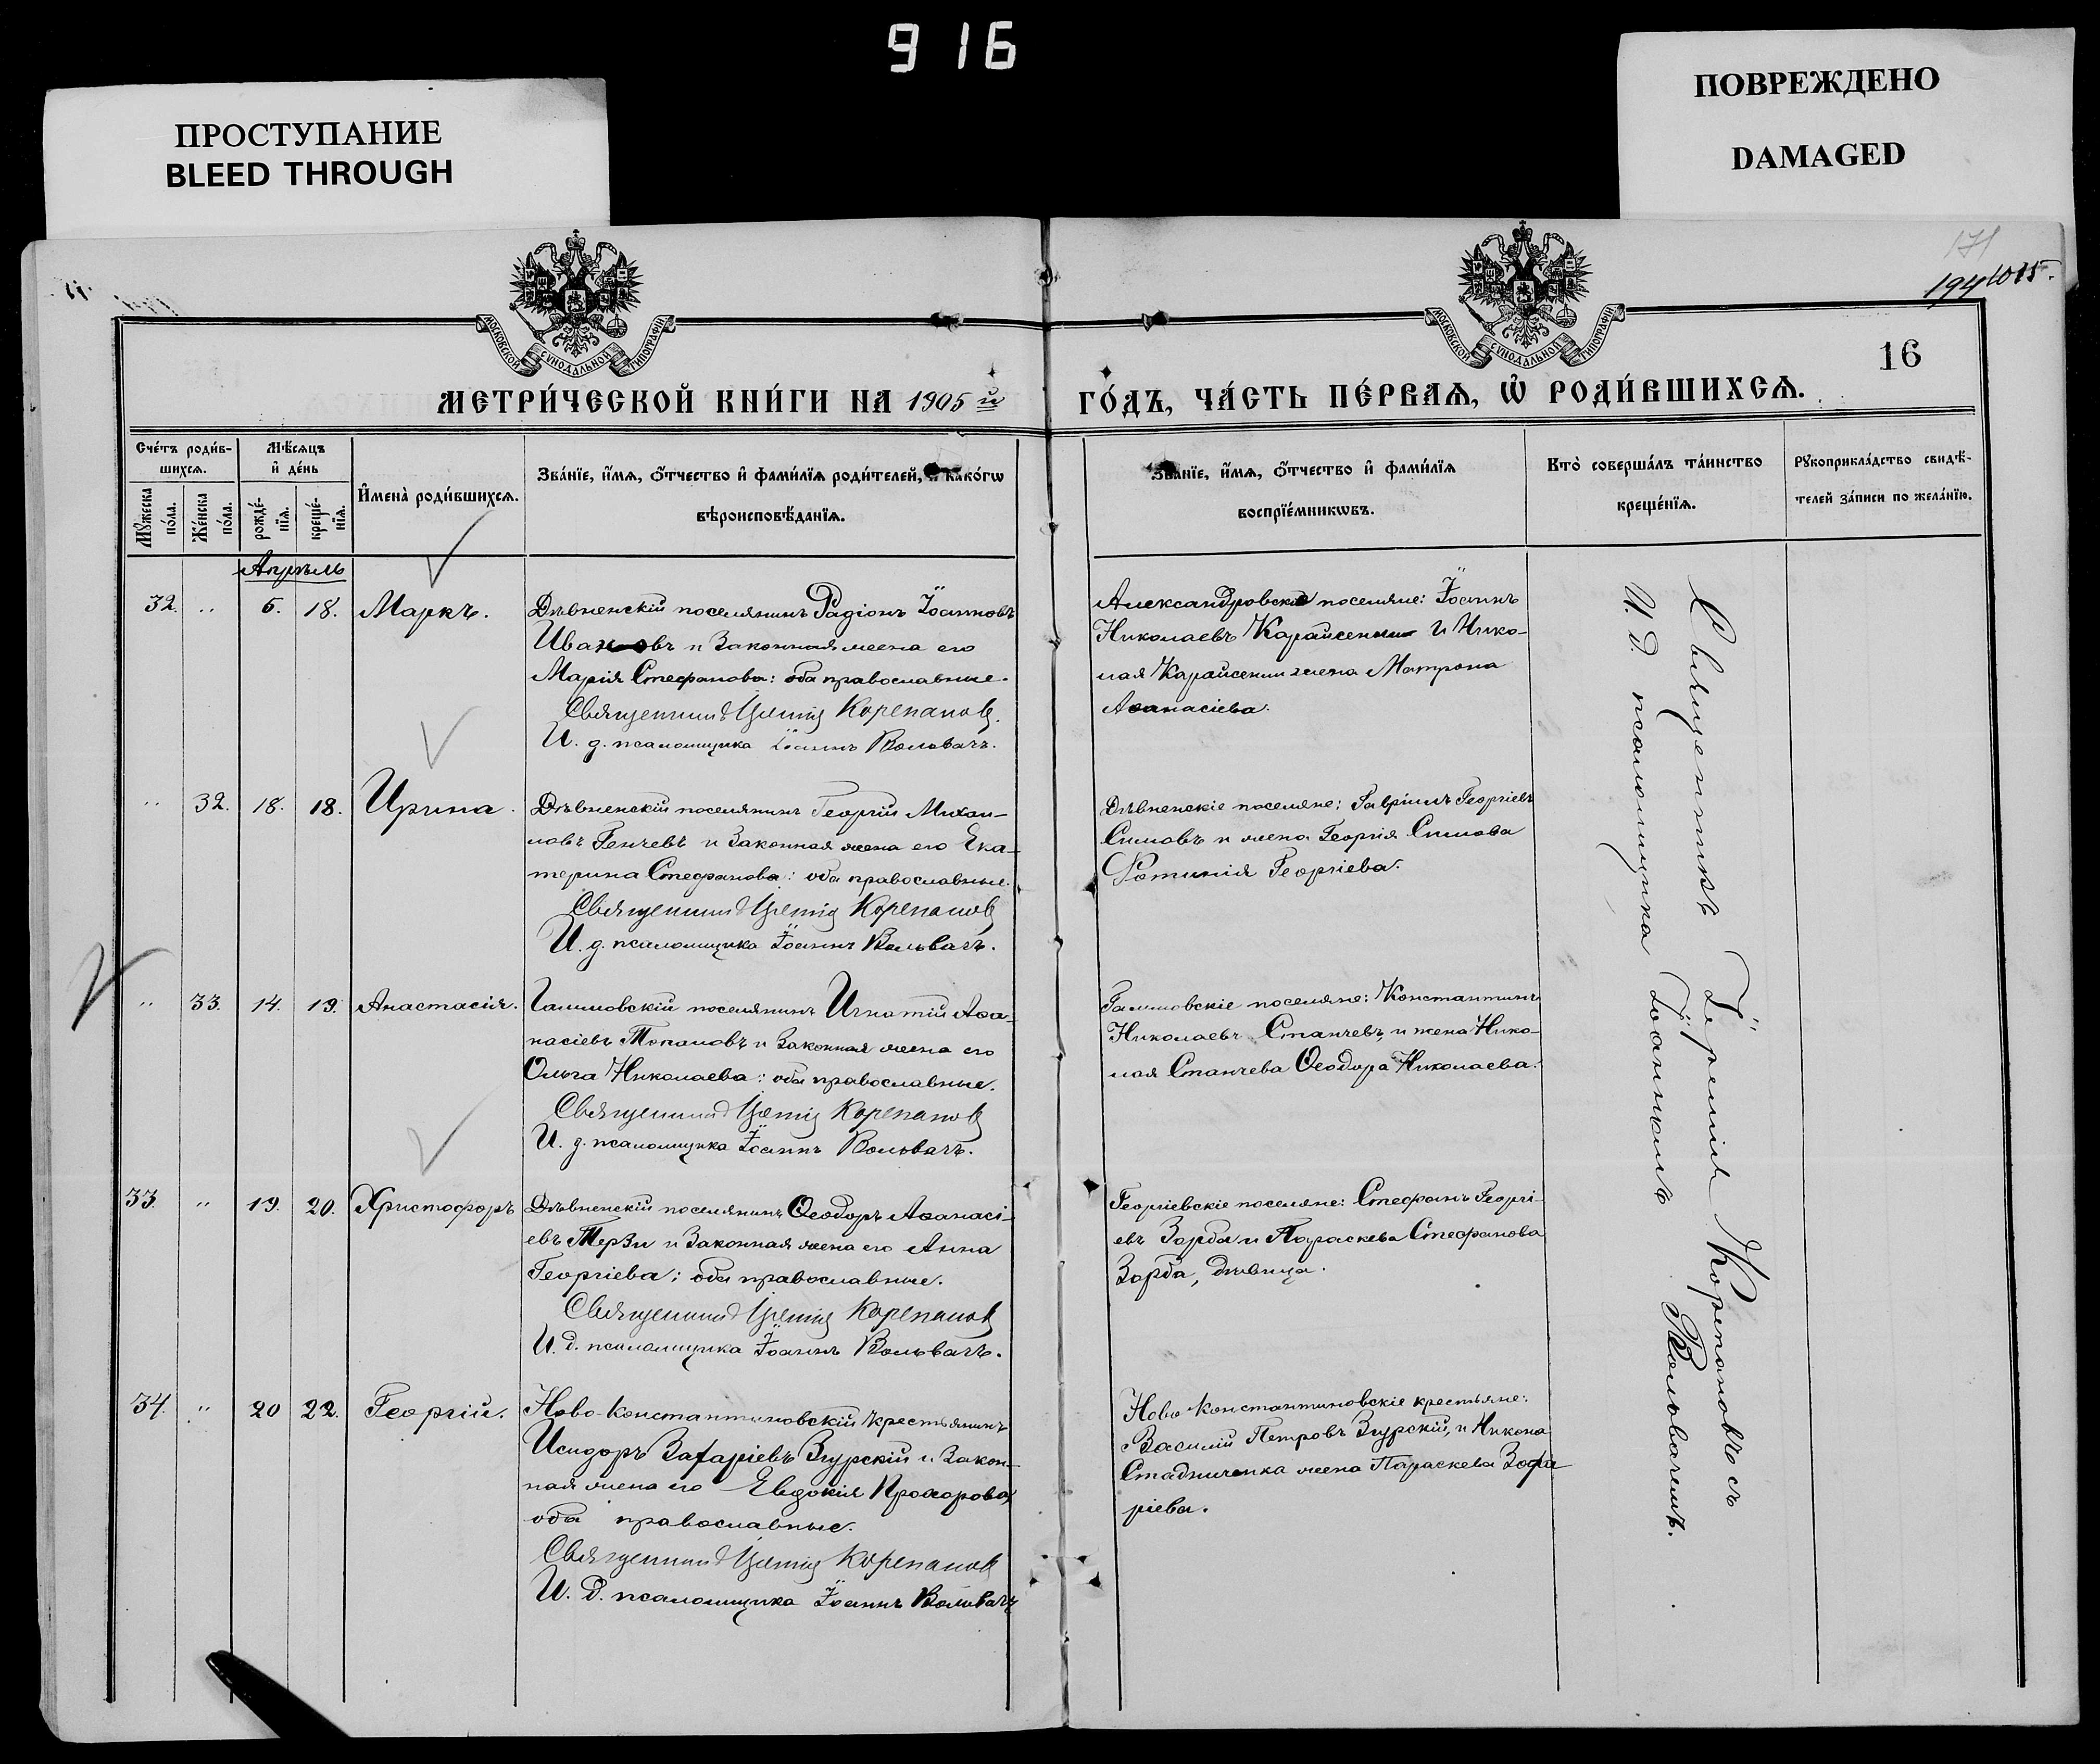 916
ПРОСТУПАНИЕ
BLEED THROUGH
ПОВРЕЖДЕНО
DAMAGED
171
МОСКОВСКОЙ СѴНОДАЛЬНОЙ ТИПОГРАФІИ
МОСКОВСКОЙ СѴНОДАЛЬНОЙ ТИПОГРАФІИ
16
МЕТРИ́ЧЕСКОЙ КНИ́ГИ НА 1905 й
ГО́ДЪ, ЧА́СТЬ ПЕ́РВАѦ, Ѡ҆ РОДИ́ВШИХСѦ.
Сче́тъ роди́в-
шихсѧ.
Мꙋжеска
по́ла.
Же́нска
по́ла.
Мѣ́сѧцъ
и҆ де́нь
рожде́-
нїѧ.
креще́-
нїѧ.
И҆мена̀ роди́вшихсѧ.
Зва́нїе, и҆́мѧ, ѻ҆́тчество и҆ фами́лїѧ роди́телей, и҆ како́гѡ
вѣроисповѣ́данїѧ.
Зва́нїе, и҆́мѧ, ѻ҆́тчество и҆ фами́лїѧ
воспрїе́мникѡвъ.
Кто̀ соверша́лъ та́инство
креще́нїѧ.
Рꙋкоприкла́дство свидѣ́-
телей за́писи по жела́нїю.
Апрѣль
32. " 5. 18. Маркъ.
Дѣвненскій поселянинъ Радіонъ Іоанновъ
Ивановъ и законная жена его
Марія Стефанова: оба православные.
Священникъ Іеремія Корепановъ.
И. д. псаломщика Іоаннъ Вольвачъ.
Александровскіе поселяне: Іоаннъ
Николаевъ Карайсенли и Нико-
лая Карайсенли жена Матрона
Аѳанасіева.
" 32. 18. 18. Ирина.
Дѣвненскій поселянинъ Георгій Михаи-
ловъ Генчевъ и законная жена его Ека-
терина Стефанова: оба православные.
Священникъ Іеремія Корепановъ
И. д. псаломщика Іоаннъ Вольвачъ.
Дѣвненскіе поселяне: Гавріилъ Георгіевъ
Симовъ и жена Георгія Симова
Фотинія Георгіева.
" 33. 14. 19. Анастасія.
поселянинъ Игнатій Аѳа-
насіевъ Топаловъ и законная жена его
Ольга Николаева: оба православные.
Священникъ Іеремія Корепановъ
И. д. псаломщика Іоаннъ Вольвачъ.
поселяне: Константинъ
Николаевъ Станчевъ, и жена Нико-
лая Станчева Ѳеодора Николаева.
33. " 19. 20. Христофоръ
Дѣвненскій поселянинъ Ѳеодоръ Аѳанасі-
евъ Терзи и законная жена его Анна
Георгіева: оба православные.
Священникъ Іеремія Корепановъ
И. д. псаломщика Іоаннъ Вольвачъ.
Георгіевскіе поселяне: Стефанъ Георгі-
евъ Зарба и Параскева Стефанова
Зарба, дѣвица.
34. " 20 22. Георгій.
Ново-Константиновскій крестьянинъ
Исидоръ Захаріевъ Згурскій и закон-
ная жена его Евдокія Прохорова,
оба православные.
Священникъ Іеремія Корепановъ
И. д. псаломщика Іоаннъ Вольвачъ
Ново Константиновскіе крестьяне:
Василій Петровъ Згурскій, и Никона
Стадниченка жена Параскева Заха-
ріева.
Священникъ Іеремія Корепановъ съ
И. д. псаломщика Іоанномъ Вольвачемъ.